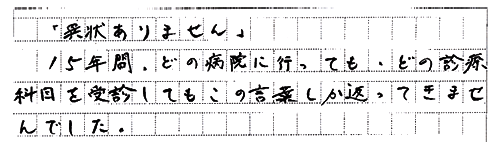 「異状ありません」
15年間、どの病院に行っても、どの診療
科目を受診してもこの言葉しか返ってきませ
んでした。